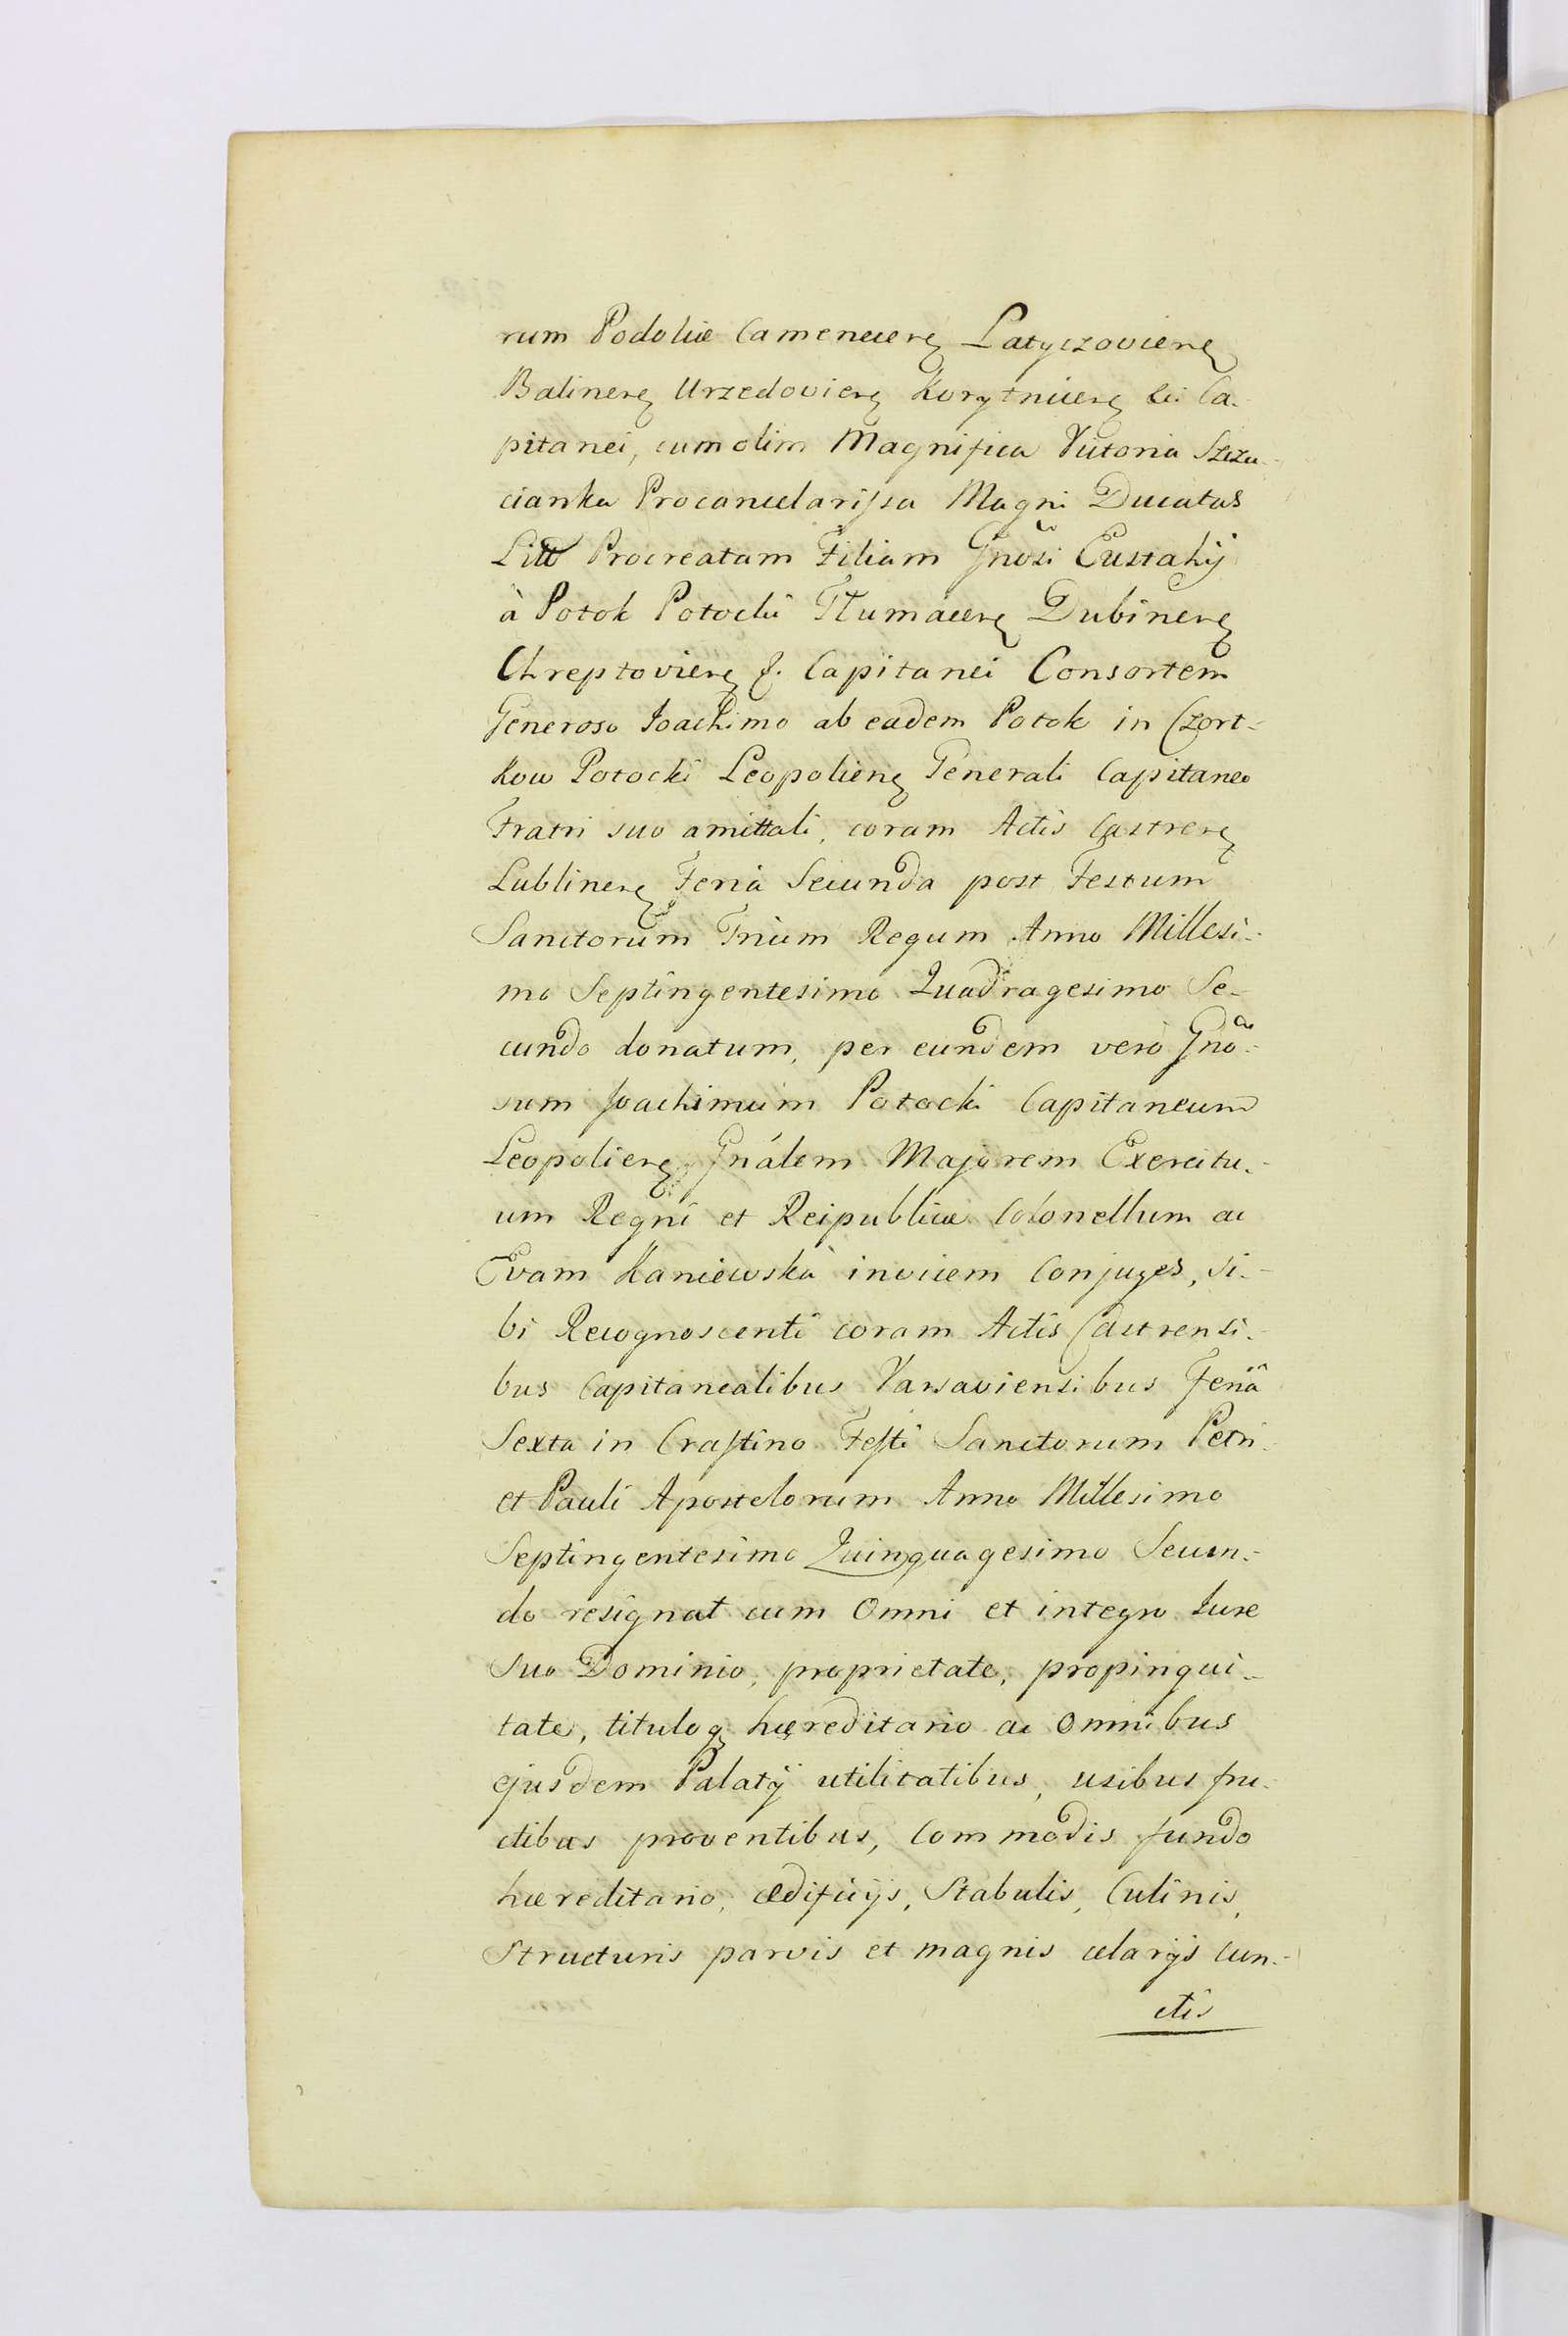 rum Podoliæ Camenecieñ Latyczovieñ
Balineñ Urzedovieñ Korytniceñ &c: Ca-
pitanei, cum olim Magnifica Victoria Szczu-
cianka Procancelarissa Magni Ducatus
Litt Procreatam Filiam Gnõsi Eustahij
à Potok Potocki Tłumaceñ Dubineñ
Chreptovieñ &. Capitanei Consortem
Generoso Joachimo ab eadem Potok in Czort-
kow Potocki Leopolieñ Generali Capitaneo
Fratri suo amittali, coram Actis Castreñ
Lublineñ Feria Secunda post Festum
Sanctorum Trium Regum Anno Millesi-
mo Septingentesimo Quadragesimo Se-
cundo donatum, per eundem verò Gnõ-
sum Joachimum Potocki Capitaneum
Leopolieñ, Gnálem Majorem Exercitu-
um Regni et Reipublicæ Colonellum ac
Evam Kaniewska invicem Conjuges, si-
bi Recognoscenti coram Actis Castrensi-
bus Capitanealibus Varsaviensibus Feriâ
Sexta in Crastino Festi Sanctorum Petri
et Pauli Apostolorum Anno Millesimo
Septingentesimo Quinquagesimo Secun-
do resignat cum Omni et integro Iure
Suo Dominio, proprietate, propinqui-
tate, tituloq hæreditario ac Omnibus
ejusdem Palatij utilitatibus, usibus fru-
ctibus proventibus, Commodis fundo
hæreditario, ædificijs, Stabulis, Culinis,
Structuris parvis et magnis celarijs Cun-
ctis